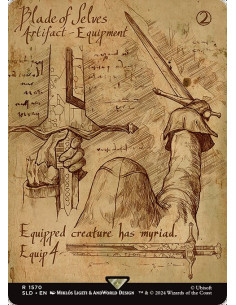 Blade of Selves
2
Artifact - Equipment
Equipped creature has myriad.
Equip 4
R 1570
SLD • EN MIKLÓS LIGETI & ANDWORLD DESIGN
© Ubisoft
™ & © 2024 Wizards of the Coast